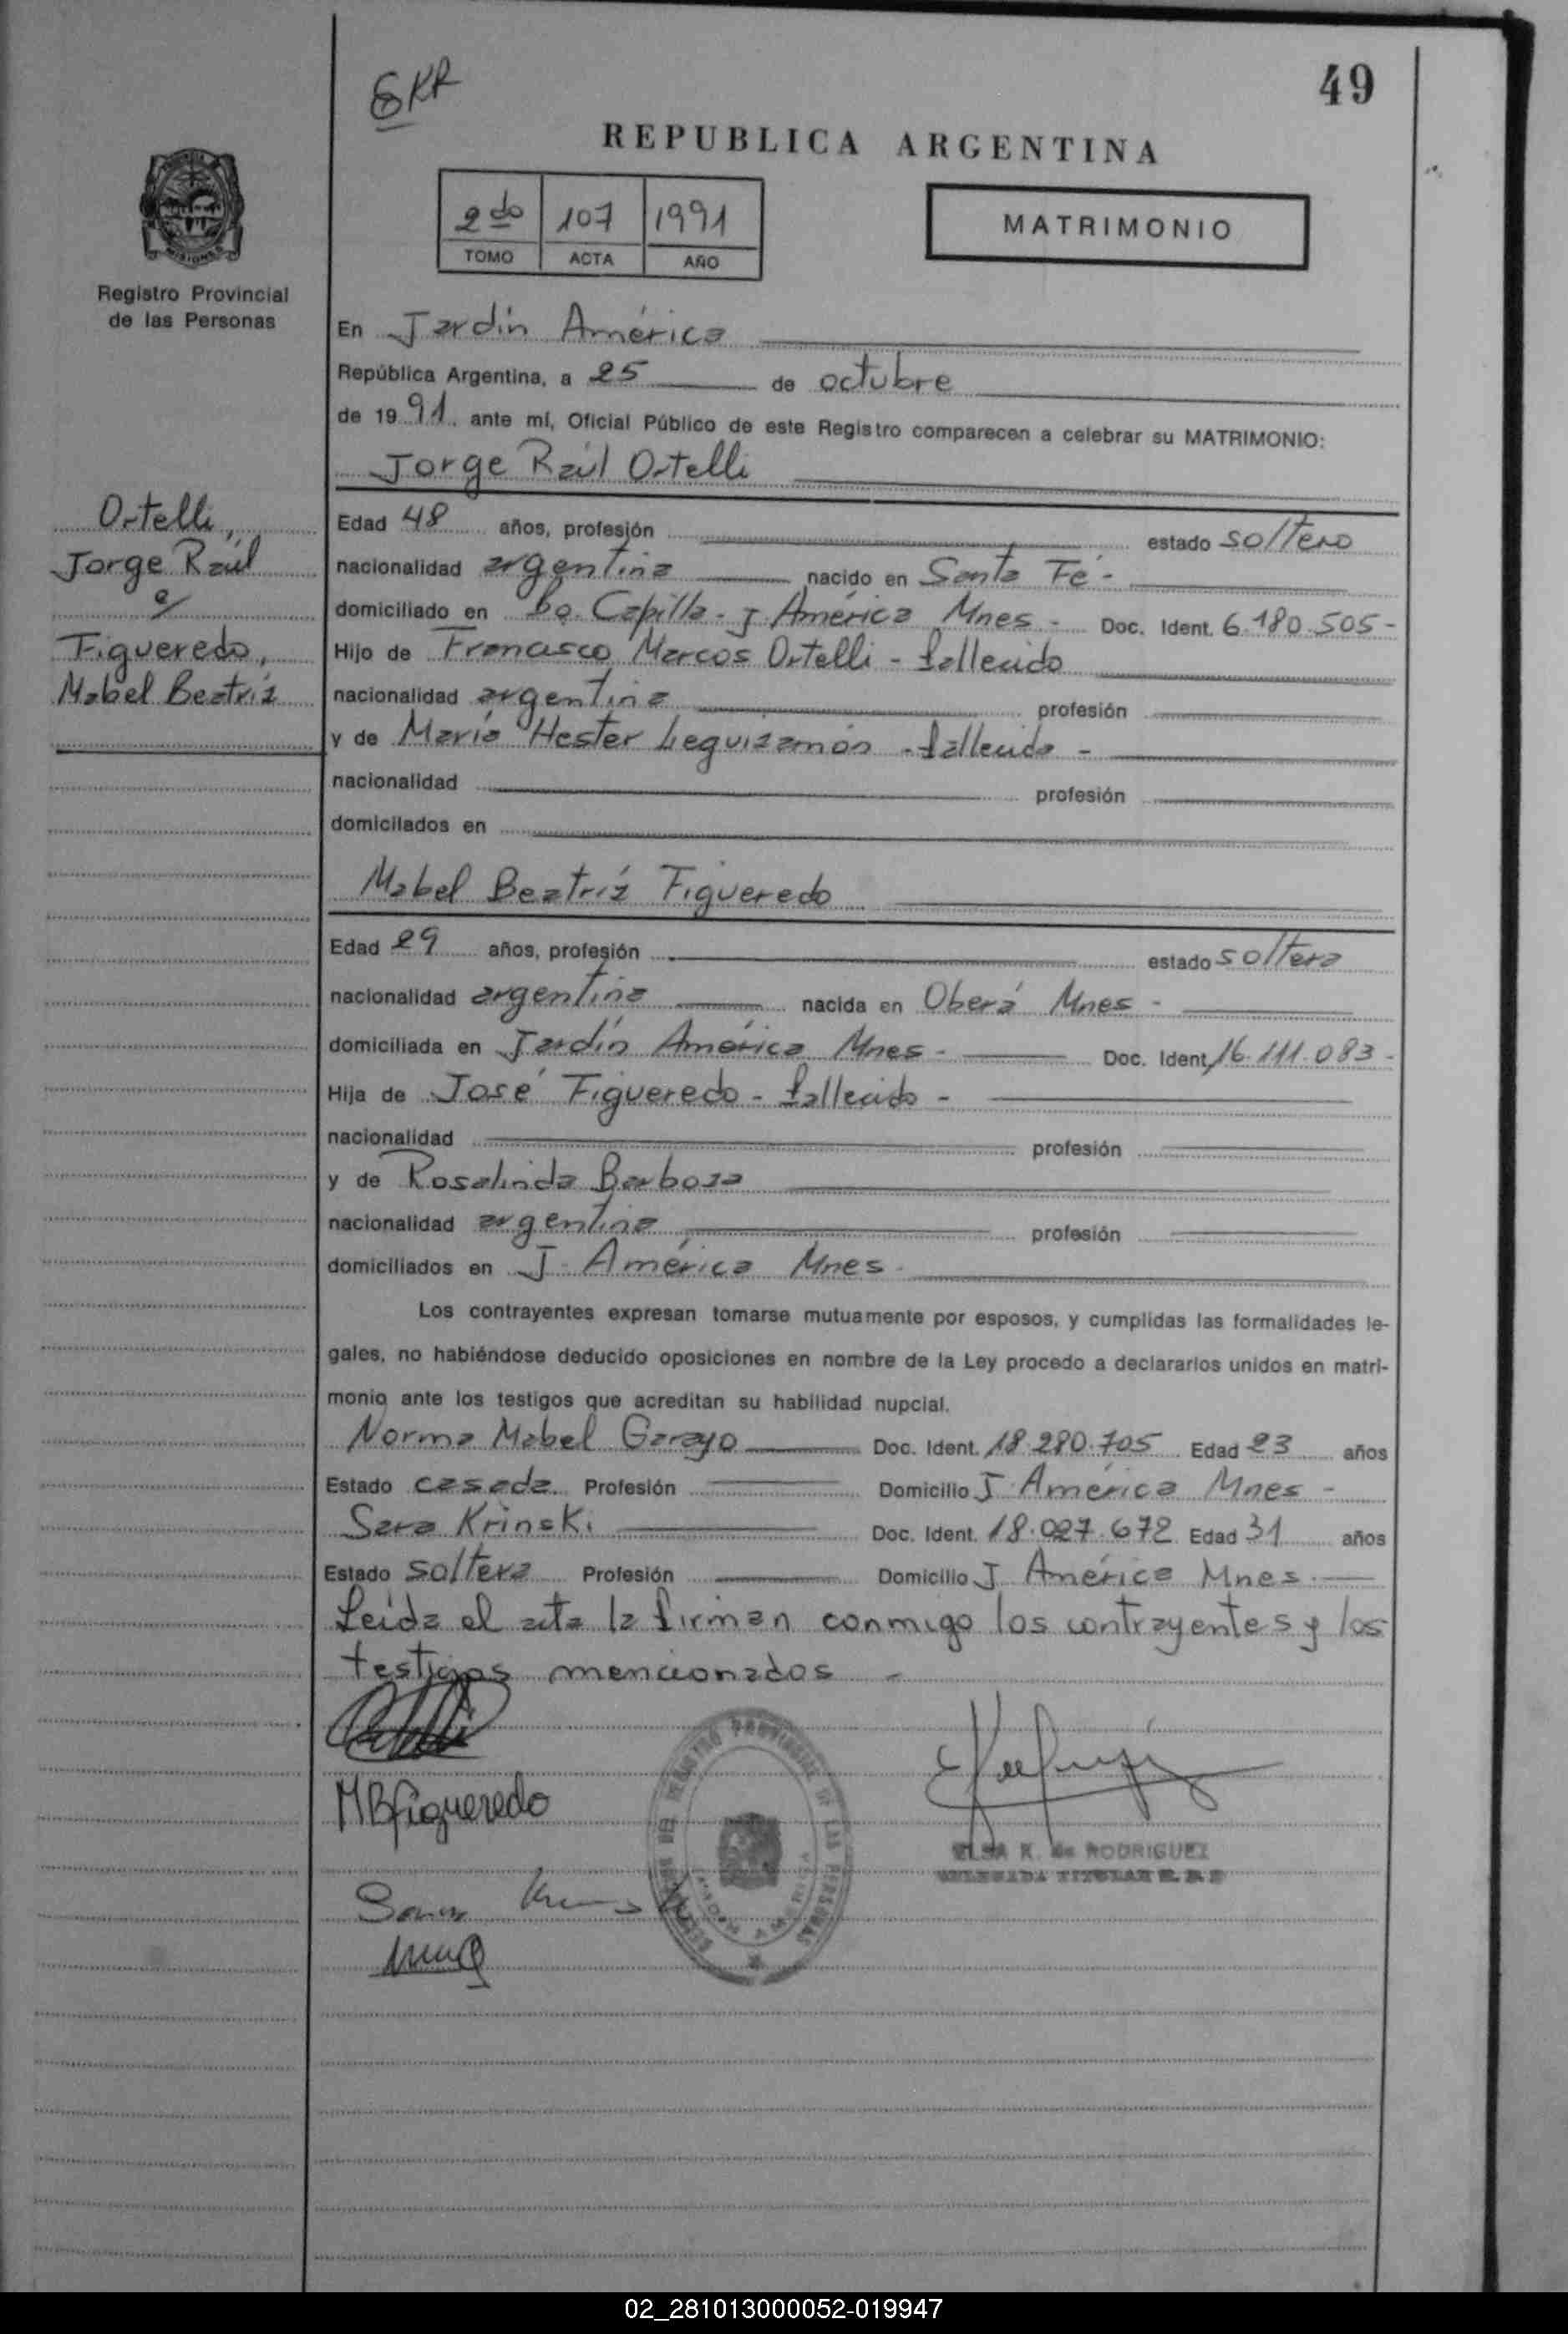 GKR
49
REPUBLICA ARGENTINA
2do 107 1991
TOMO ACTA AÑO
MATRIMONIO
MISIONES
Registro Provincial
de las Personas
En Jardín América
República Argentina, a 25 de octubre
de 1991 ante mí, Oficial Público de este Registro comparecen a celebrar su MATRIMONIO:
Jorge Raúl Ortelli
Ortelli,
Jorge Raúl
c/
Figueredo,
Mabel Beatríz
Edad 48 años, profesión estado soltero
nacionalidad argentina nacido en Santa Fé -
domiciliado en Bo. Capilla - J. América Mnes - Doc. Ident. 6.180.505 -
Hijo de Francisco Marcos Ortelli - fallecido
nacionalidad argentina profesión
y de María Hester Leguizamón - fallecida -
nacionalidad profesión
domicilados en
Mabel Beatríz Figueredo
Edad 29 años, profesión estado soltera
nacionalidad argentina nacida en Oberá Mnes -
domiciliada en Jardín América Mnes - Doc. Ident. 16.111.083 -
Hija de José Figueredo - fallecido -
nacionalidad profesión
y de Rosalinda Barboza
nacionalidad argentina profesión
domiciliados en J. América Mnes.
Los contrayentes expresan tomarse mutuamente por esposos, y cumplidas las formalidades le-
gales, no habiéndose deducido oposiciones en nombre de la Ley procedo a declararlos unidos en matri-
monio ante los testigos que acreditan su habilidad nupcial.
Norma Mabel Garayo Doc. Ident. 18.280.705 Edad 23 años
Estado casada Profesión Domicilio J. América Mnes -
Sara Krinski Doc. Ident. 18.027.672 Edad 31 años
Estado soltera Profesión Domicilio J América Mnes.
Leída el acta la firman conmigo los contrayentes y los
testigos mencionados -
MBfigueredo
ELSA K. de RODRIGUEZ
DELEGADA TITULAR R. P. P
02_281013000052-019947